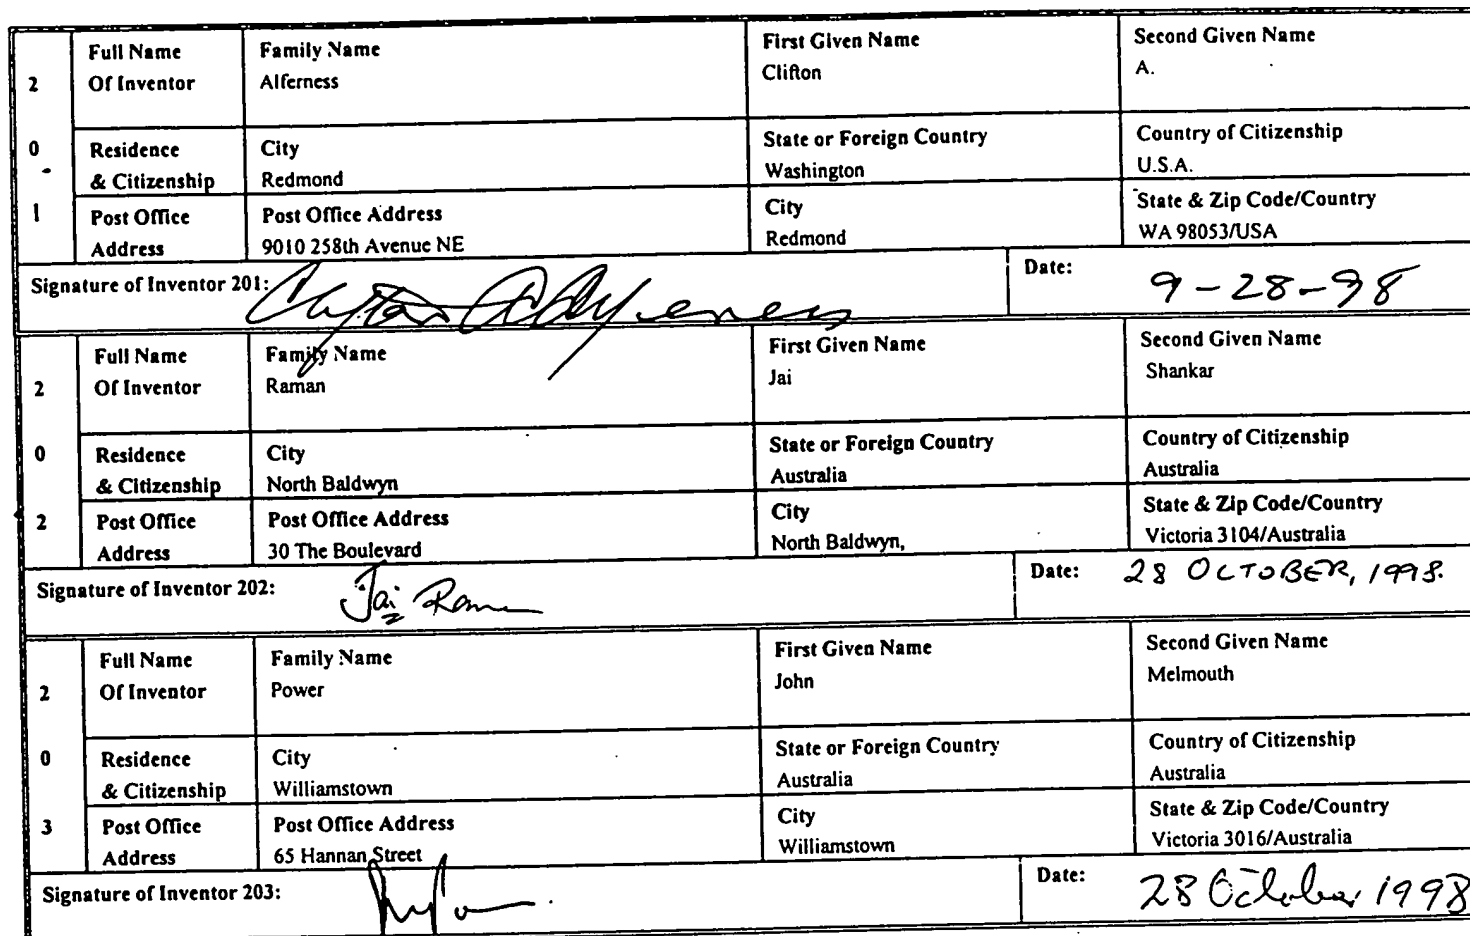 2 Full Name Of Inventor Family Name Alferness First Given Name Clifton Second Given Name A.
0 Residence & Citizenship City Redmond State or Foreign Country Washington Country of Citizenship U.S.A.
1 Post Office Address Post Office Address 9010 258th Avenue NE City Redmond State & Zip Code/Country WA 98053/USA
Signature of Inventor 201: Clifton A Alferness Date: 9-28-98
2 Full Name Of Inventor Family Name Raman First Given Name Jai Second Given Name Shankar
0 Residence & Citizenship City North Baldwyn State or Foreign Country Australia Country of Citizenship Australia
2 Post Office Address Post Office Address 30 The Boulevard City North Baldwyn, State & Zip Code/Country Victoria 3104/Australia
Signature of Inventor 202: Jai Raman Date: 28 OCTOBER, 1998.
2 Full Name Of Inventor Family Name Power First Given Name John Second Given Name Melmouth
0 Residence & Citizenship City Williamstown State or Foreign Country Australia Country of Citizenship Australia
3 Post Office Address Post Office Address 65 Hannan Street City Williamstown State & Zip Code/Country Victoria 3016/Australia
Signature of Inventor 203: Date: 28 October 1998